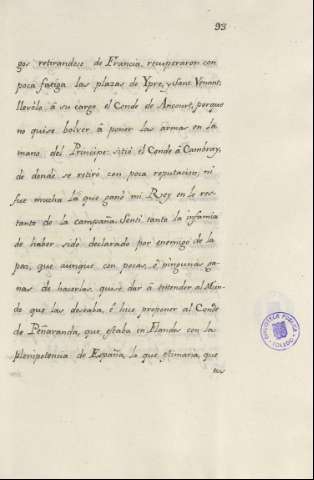 93
gos retirandose de Francia, recuperaron con
poca fatiga las plazas de Ypre, y Sant Venant;
llevòla à su cargo el Conde de Ancourt, porque
no quise bolver à poner las armas en la
mano del Principe: sitiò el Conde à Cambray,
de donde se retirò con poca reputacion, ni
fue mucha la que ganò mi Rey en lo res-
tante de la campaña. Senti tanto la infamia
de haber sido declarado por enemigo de la
paz, que aunque con pocas, ò ningunas ga-
nas de hacerlas, quise dàr à entender al Mun-
do que las deseaba, è hice proponer al Conde
de Peñaranda, que estaba en Flandes con la
plenipotencia de España, lo que estimaria, que
BIBLIOTECA PUBLICA
TOLEDO